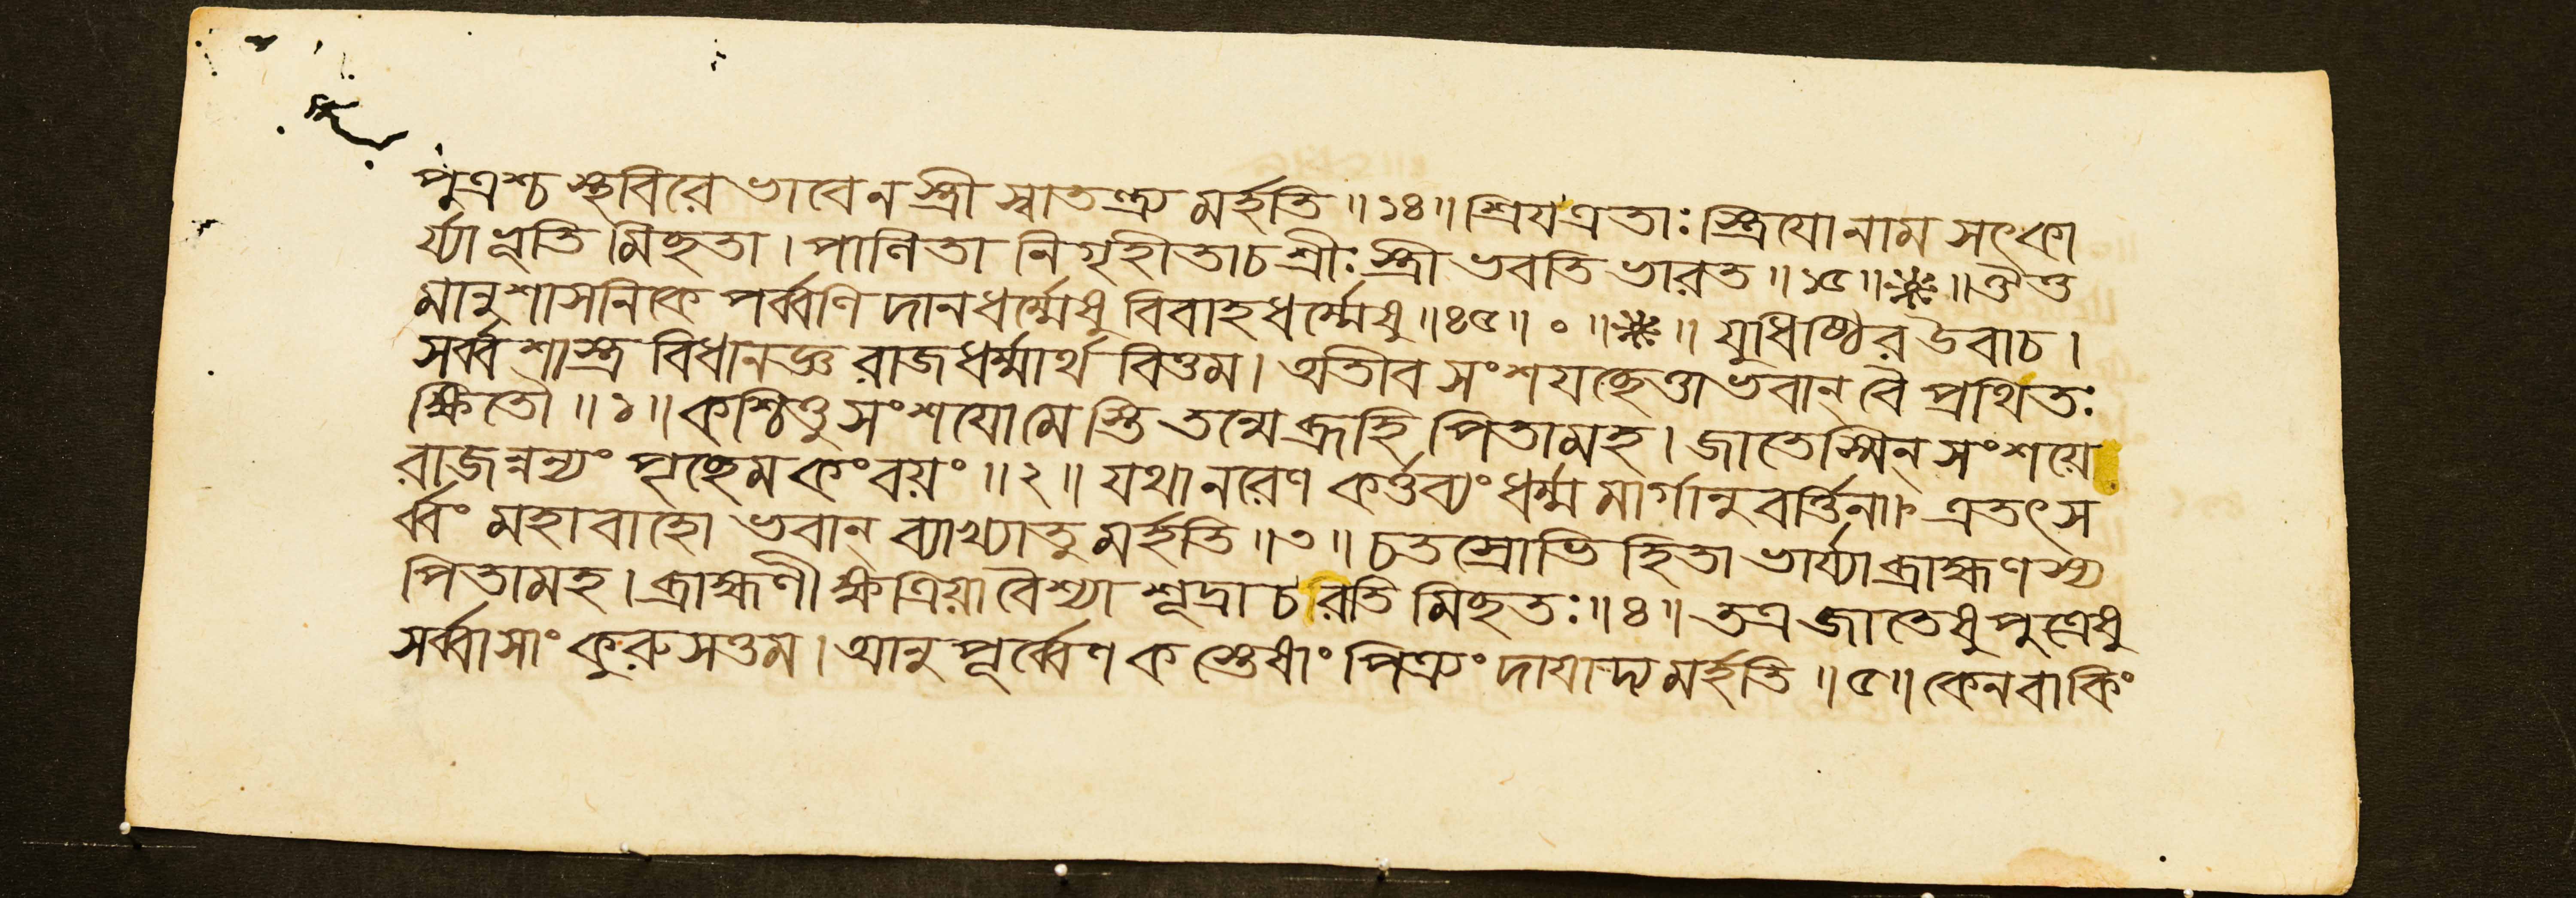 পুত্রশ্চ স্থবিরে ভাবে ন স্ত্রী স্বাতন্ত্র্য মর্হতি ॥ ১৪ ॥ শ্রিয এতাঃ স্ত্রিযো নাম সৎকা
র্য্যা ভূতি মিচ্ছতা । পাণিতা নিগৃহীতা চ শ্রীঃ স্ত্রী ভবতি ভারত ॥ ১৫ ॥ ❋ ॥ ঔত্ত
মানুশাসনিকে পর্ব্বণি দানধর্ম্মেষু বিবাহধর্ম্মেষু ॥ ৪৫ ॥ ० ॥ ❋ ॥ যুধিষ্ঠির উবাচ ।
সর্ব্ব শাস্ত্র বিধানজ্ঞ রাজধর্ম্মার্থ বিত্তম । অতীব সংশযচ্ছেত্তা ভবান্ বৈ প্রথিতঃ
ক্ষিতৌ ॥ ১ ॥ কশ্চিত্তু সংশযো মেস্তি তন্মে ব্রূহি পিতামহ । জাতেস্মিন্ সংশয়ে
রাজন্নন্যং পৃচ্ছেম কং বয়ং ॥ ২ ॥ যথা নরেণ কর্ত্তব্যং ধর্ম্ম মার্গানুবর্ত্তিনা । এতৎ স
র্ব্বং মহাবাহো ভবান্ ব্যাখ্যাতু মর্হতি ॥ ৩ ॥ চতস্রোভি হিতা ভার্য্যা ব্রাহ্মণস্য
পিতামহ । ব্রাহ্মণী ক্ষত্রিয়া বৈশ্যা শূদ্রা চ রতি মিচ্ছতঃ ॥ ৪ ॥ তত্র জাতেষু পুত্রেষু
সর্ব্বাসাং কুরুসত্তম । আনুপূর্ব্বেণ কস্তেষাং পিত্র্যং দাযাদ্য মর্হতি ॥ ৫ ॥ কেন বা কিং